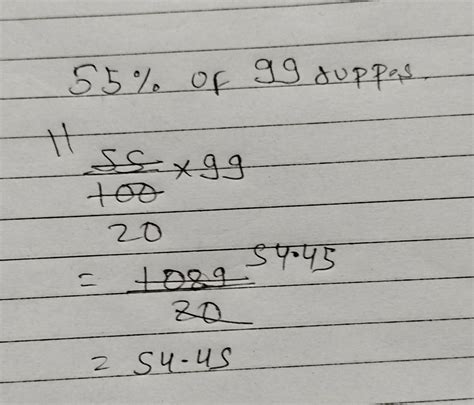 55% of 99 ruppes.
11
55/100 × 99
20
= 1089/20 54.45
= 54.45